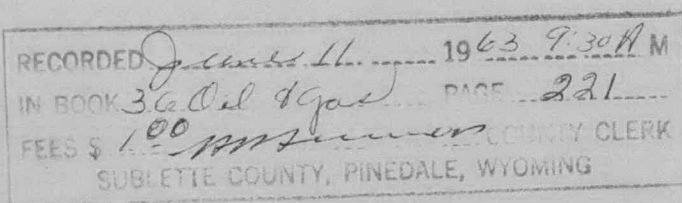 RECORDED June 11 1963 9:30 A M
IN BOOK 36 Oil & Gas PAGE 221
FEES $ 1.00 COUNTY CLERK
SUBLETTE COUNTY, PINEDALE, WYOMING